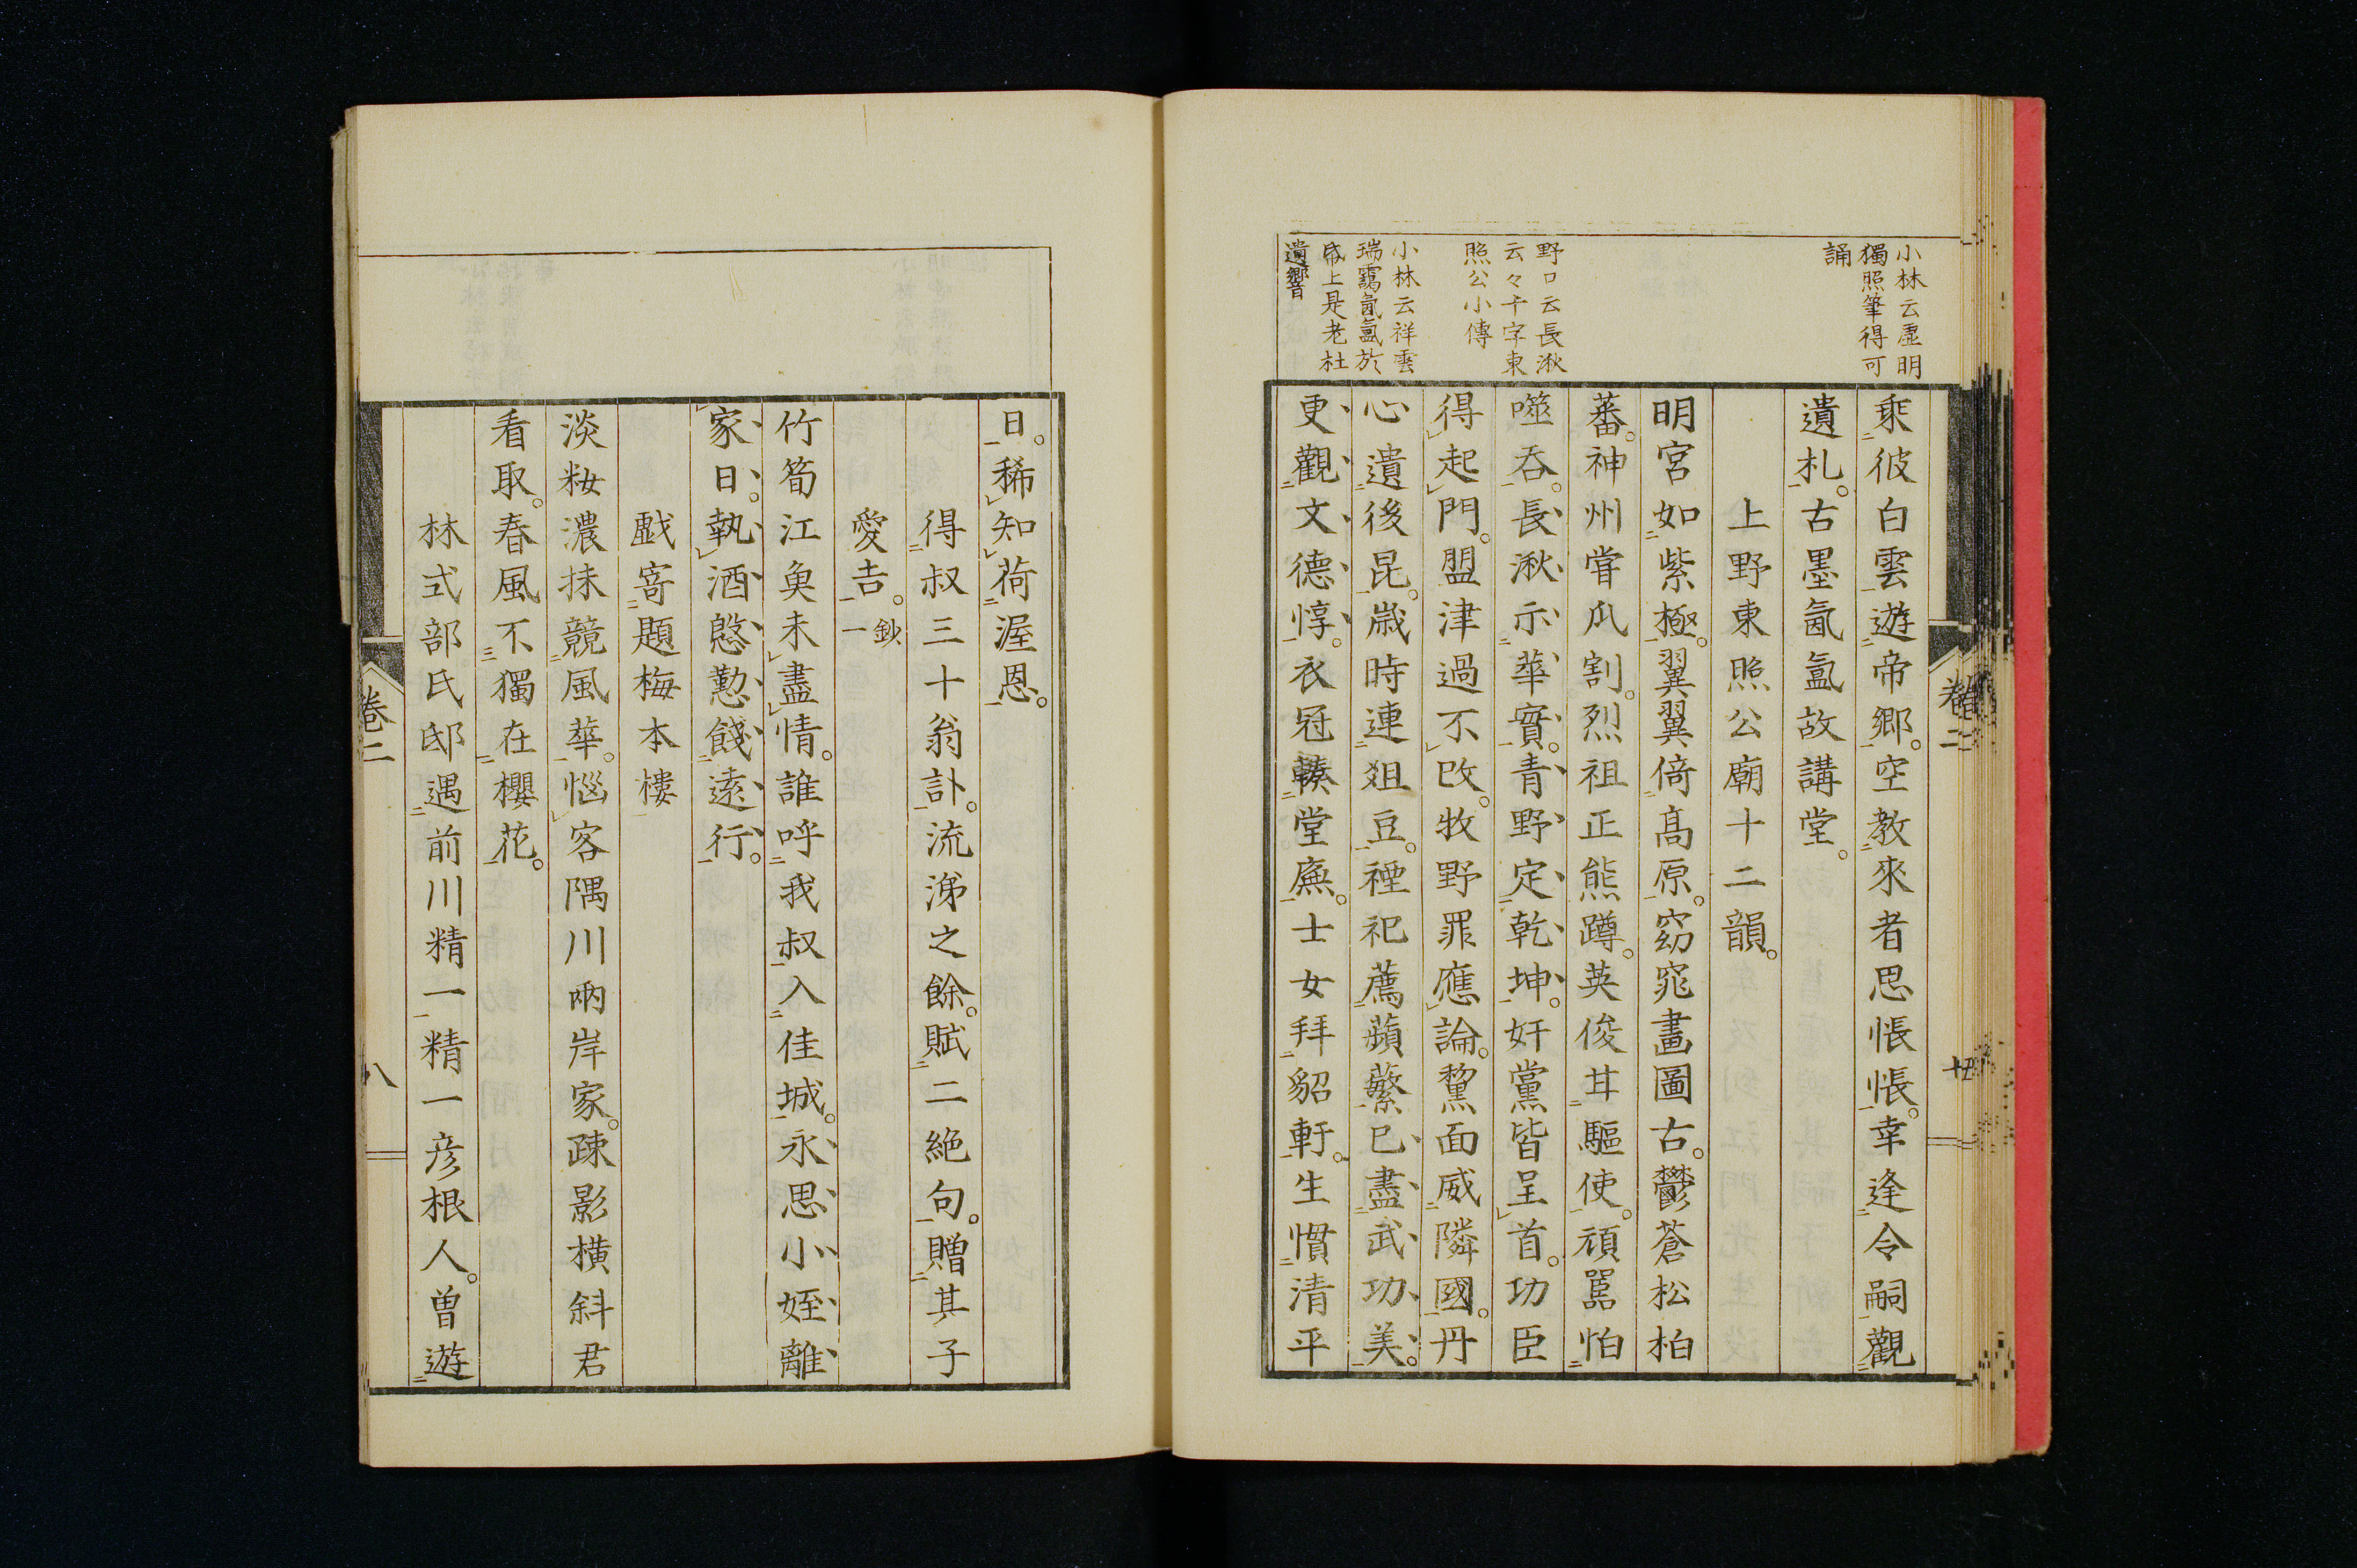 小林云虛明
獨照筆得可
誦
野口云長湫
云々十字東
照公小傳
小林云祥雲
瑞靄氤氳於
帋上是老杜
遺響
乘彼白雲遊帝鄉。空教來者思悵悵。幸逢令嗣觀
遺札。古墨氤氳故講堂。
上野東照公廟十二韻。
明宮如紫極。翼翼倚高原。窈窕畫圖古。鬱蒼松柏
蕃。神州嘗瓜割。烈祖正熊蹲。英俊甘驅使。頑嚚怕
噬吞。長湫示華實。青野定乾坤。奸黨皆呈首。功臣
得起門。盟津過不改。牧野罪應論。黧面威隣國。丹
心遺後昆。歲時連俎豆。禋祀薦蘋蘩。已盡武功美。
更觀文德惇。衣冠輳堂廡。士女拜貂軒。生慣清平
卷二
日。稀知荷渥恩。
得叔三十翁訃。流涕之餘。賦二絕句。贈其子
愛吉。鈔一
竹筍江魚未盡情。誰呼我叔入佳城。永思小姪離
家日。執酒慇懃餞遠行。
戯寄題梅本樓
淡粧濃抹競風華。惱客隅川兩岸家。疎影橫斜君
看取。春風不獨在櫻花。
林式部氏邸遇前川精一精一彥根人。曾遊
卷二
八